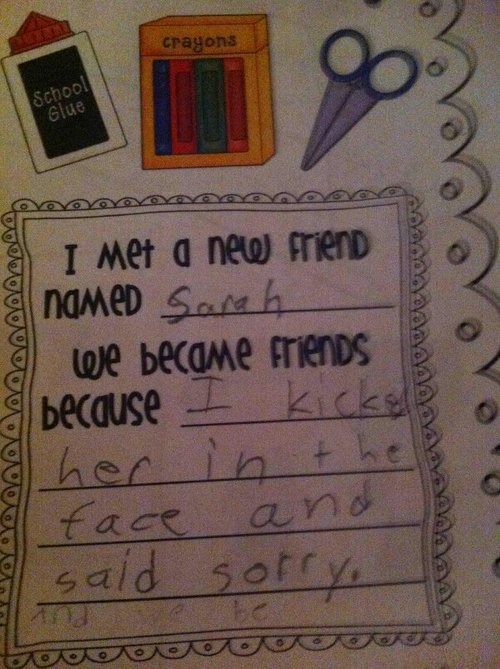 School
Glue
crayons
I Met a new Friend
named Sarah
we became Friends
because I kicked
her in the
face and
said sorry.
And we be